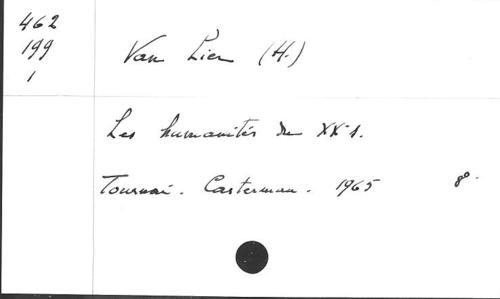 462
199
1
Van Lier (H.)
Les humanités du XXe s.
Tournai. Casterman. 1965 8º.